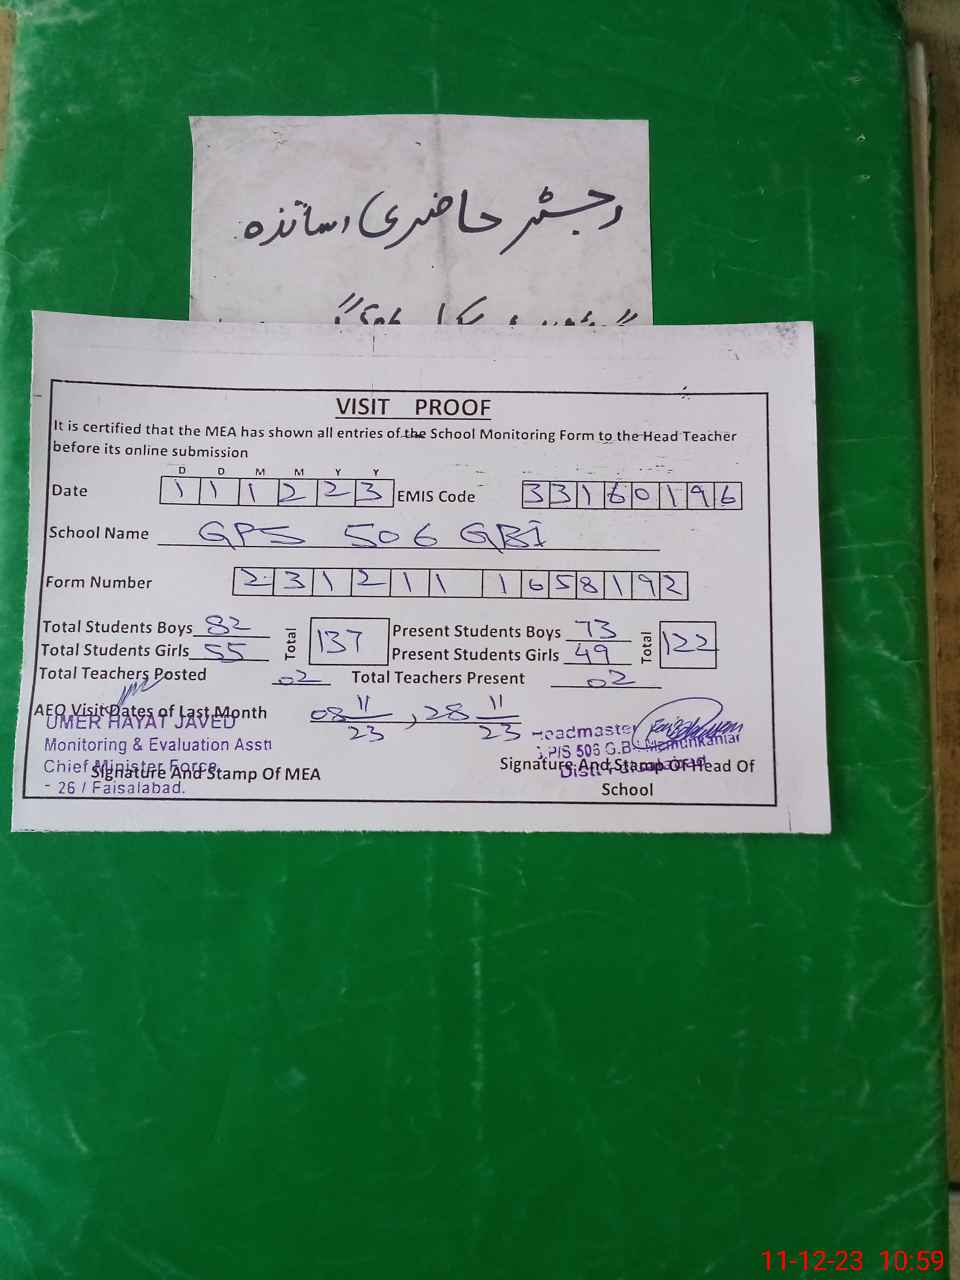 رجسٹر حاضری اساتذہ
VISIT PROOF
It is certified that the MEA has shown all entries of the School Monitoring Form to the Head Teacher
before its online submission
D D M M Y Y
Date 1 1 1 2 2 3 EMIS Code 3 3 1 6 0 1 9 6
School Name GPS 506 GBI
Form Number 2 3 1 2 1 1 1 6 5 8 1 9 2
Total Students Boys 82 Total 137 Present Students Boys 73 Total 122
Total Students Girls 55 Present Students Girls 49
Total Teachers Posted 02 Total Teachers Present 02
AEO Visit Dates of Last Month 08 11 23, 28 11 23
UMER HAYAT JAVED
Monitoring & Evaluation Asstt
Chief Minister Force
- 26 / Faisalabad.
Signature And Stamp Of MEA
Headmaster
506 G.B
Signature And Stamp Of Head Of
School
11-12-23 10:59